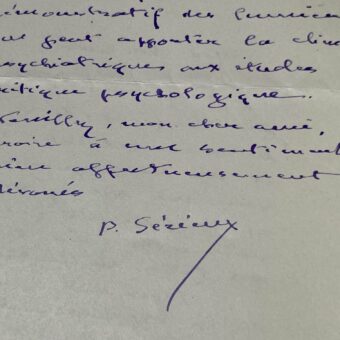 démonstratif des lumières
que peut apporter la clini
psychiatriques aux études
critique psychologique.
Veuillez, mon cher ami,
croire à mes sentiments
bien affectueusement
dévoués
P. Sérieux